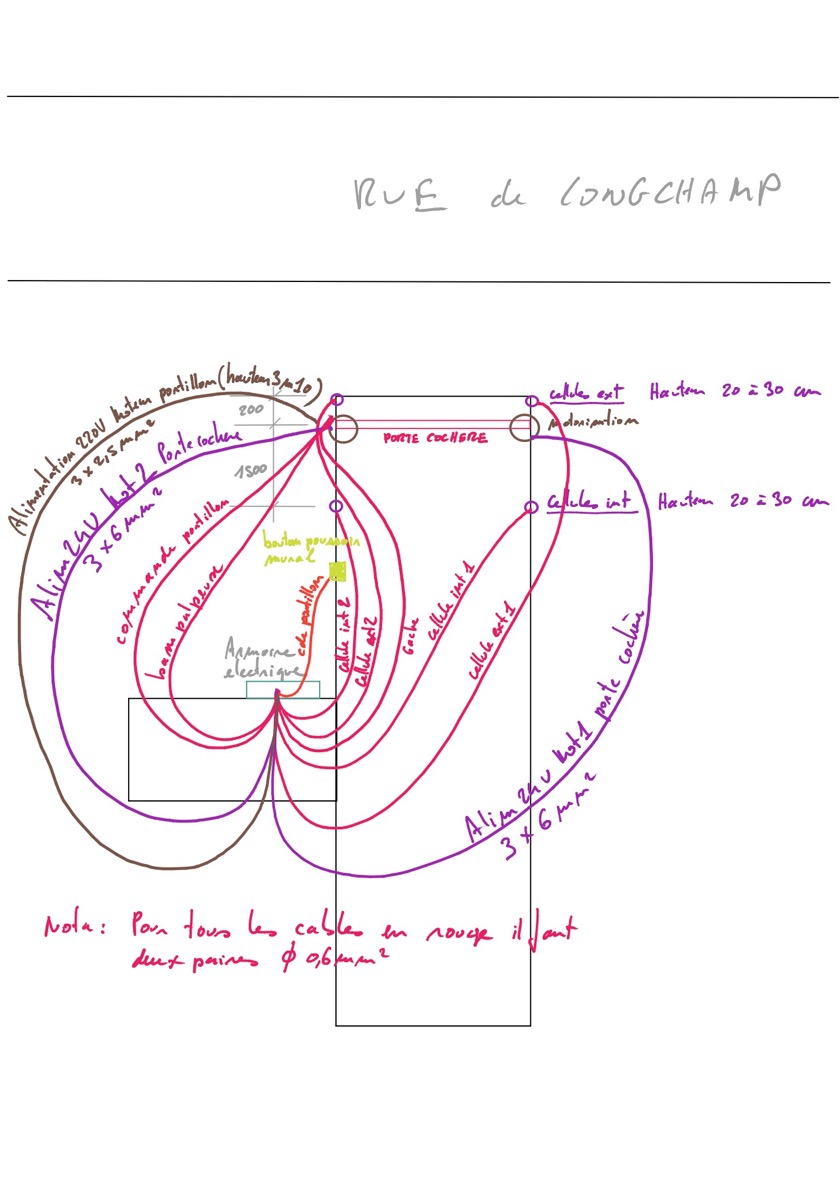 RUE de LONGCHAMP
Alimentation 220V Moteur portillon (hauteur 3m10)
3 x 2,5 mm²
200
cellules ext Hauteur 20 à 30 cm
motorisation
PORTE COCHERE
Alim 24V Mot 2 Porte cochère
3 x 6 mm²
1500
Cellules int Hauteur 20 à 30 cm
commande portillon
bouton poussoir
mural
barre palpeuse
cde portillon
cellule int 2
cellule ext 2
Gache
cellule int 1
cellule ext 1
Armoire
electrique
Alim 24V Mot 1 porte cochère
3 x 6 mm²
Nota : Pour tous les cables en rouge il faut
deux paires ϕ 0,6 mm²